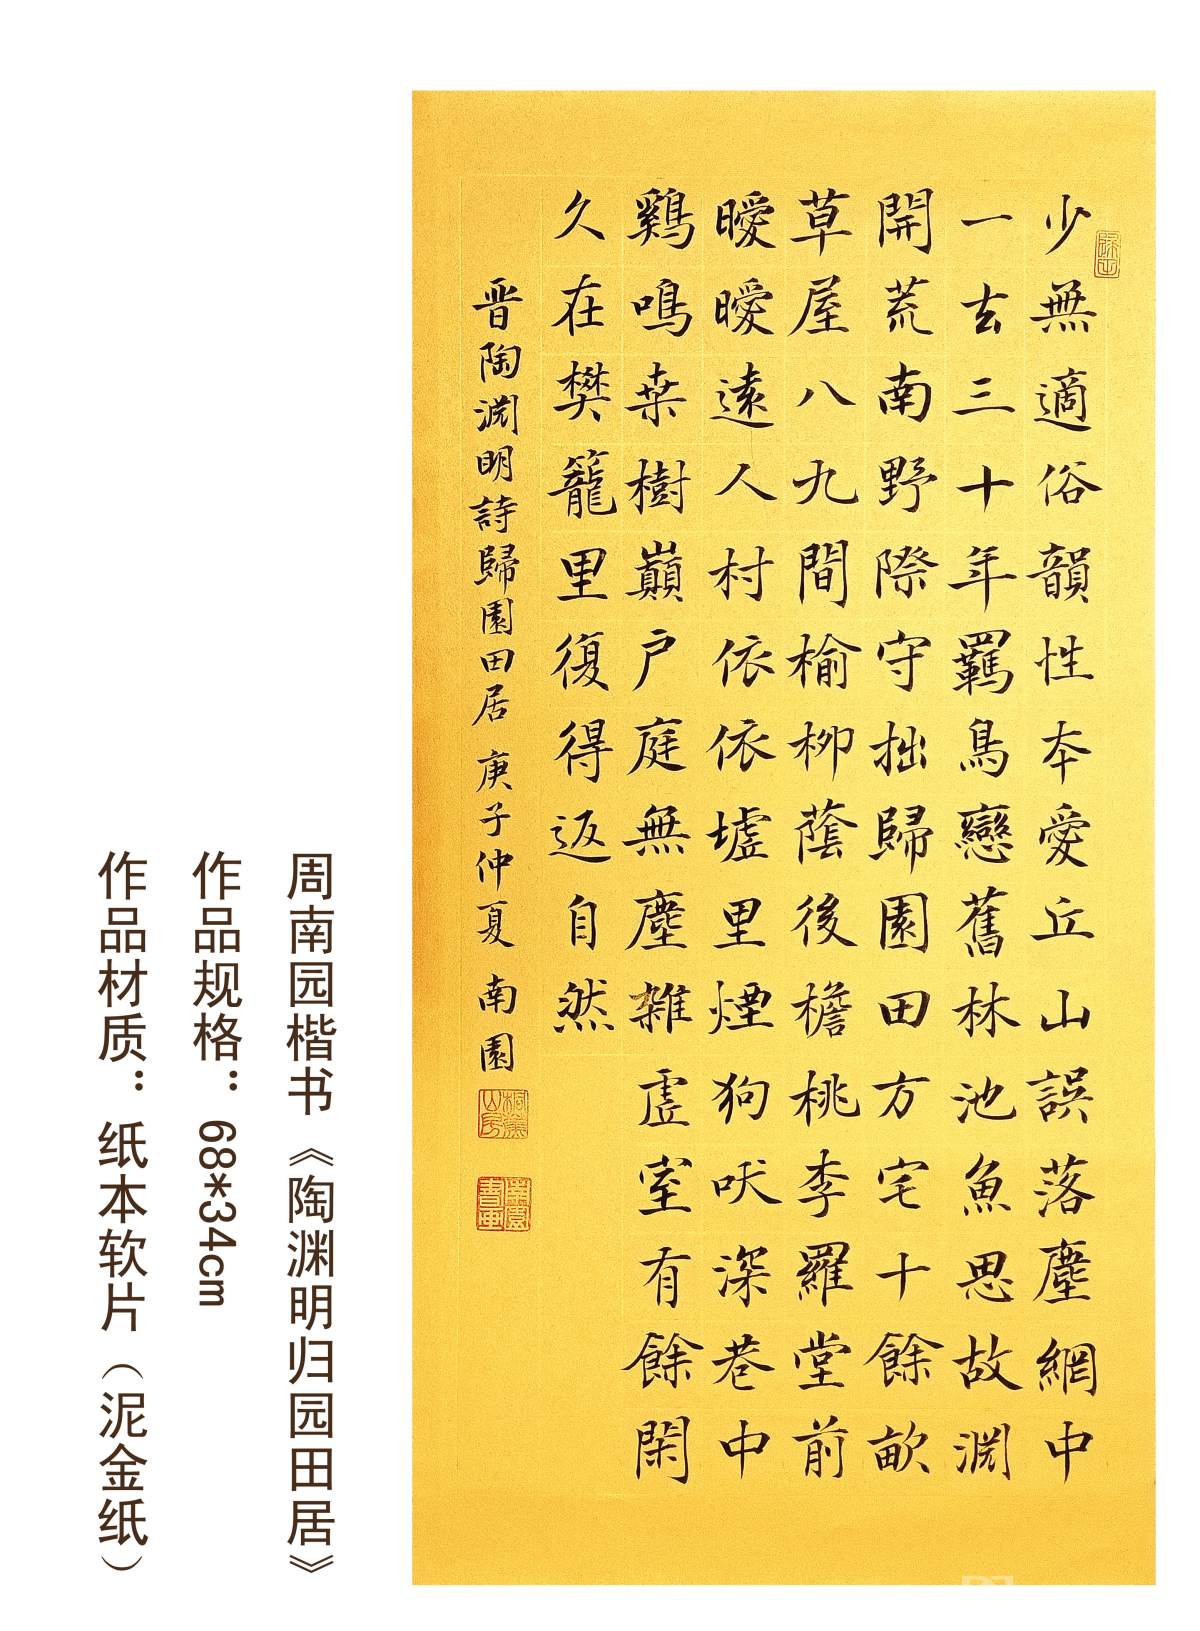 少無適俗韻性本愛丘山誤落塵網中
一去三十年羈鳥戀舊林池魚思故淵
開荒南野際守拙歸園田方宅十餘畝
草屋八九間榆柳蔭後檐桃李羅堂前
曖曖遠人村依依墟里煙狗吠深巷中
鷄鳴桑樹巔戶庭無塵雜虛室有餘閑
久在樊籠里復得返自然
晋陶淵明詩歸園田居 庚子仲夏 南園
周南园楷书《陶渊明归园田居》
作品规格：68*34cm
作品材质：纸本软片（泥金纸）